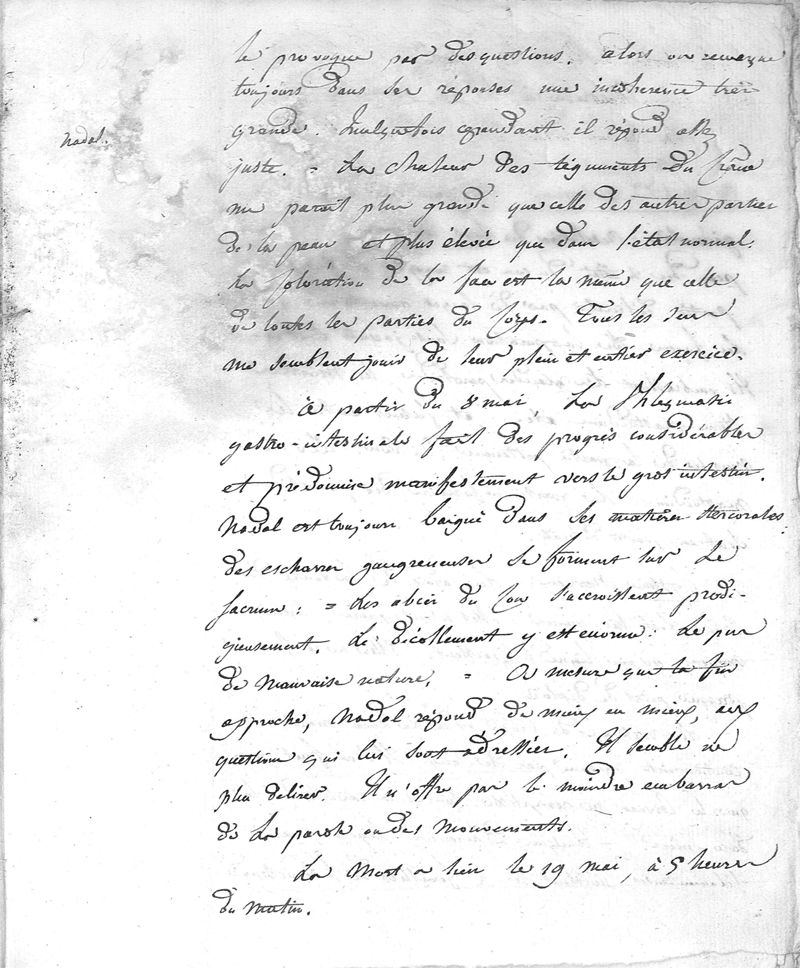 le provoque par des questions. alors on remarque
toujours dans ses réponses une incohérence très
grande. Quelquefois cependant il répond assez
Nadal.
juste. = La chaleur des téguments du Crâne
me parait plus grande que celle des autres parties
de la peau et plus élevée que dans l'état normal.
La coloration de la face est la même que celle
de toutes les parties du Corps. Tous les sens
me semblent jouir de leur plein et entier exercice.
à partir du 8 mai, La Phlegmasie
gastro-intestinale fait des progrès considérables
et prédomine manifestement vers le gros intestin.
Nadal est toujours baigné dans ses matières stercorales;
des escharres gangreneuses se forment sur le
sacrum; = Les abcès du Cou s'accroissent prodi-
gieusement. Le décollement y est énorme: Le pus
de mauvaise nature. = à mesure que la fin
approche, Nadal répond de mieux en mieux, aux
questions qui lui sont adressées. Il semble ne
plus délirer. Il n'offre pas le moindre embarras
de la parole ou des mouvements.
La Mort a lieu le 19 mai, à 5 heures
du matin.